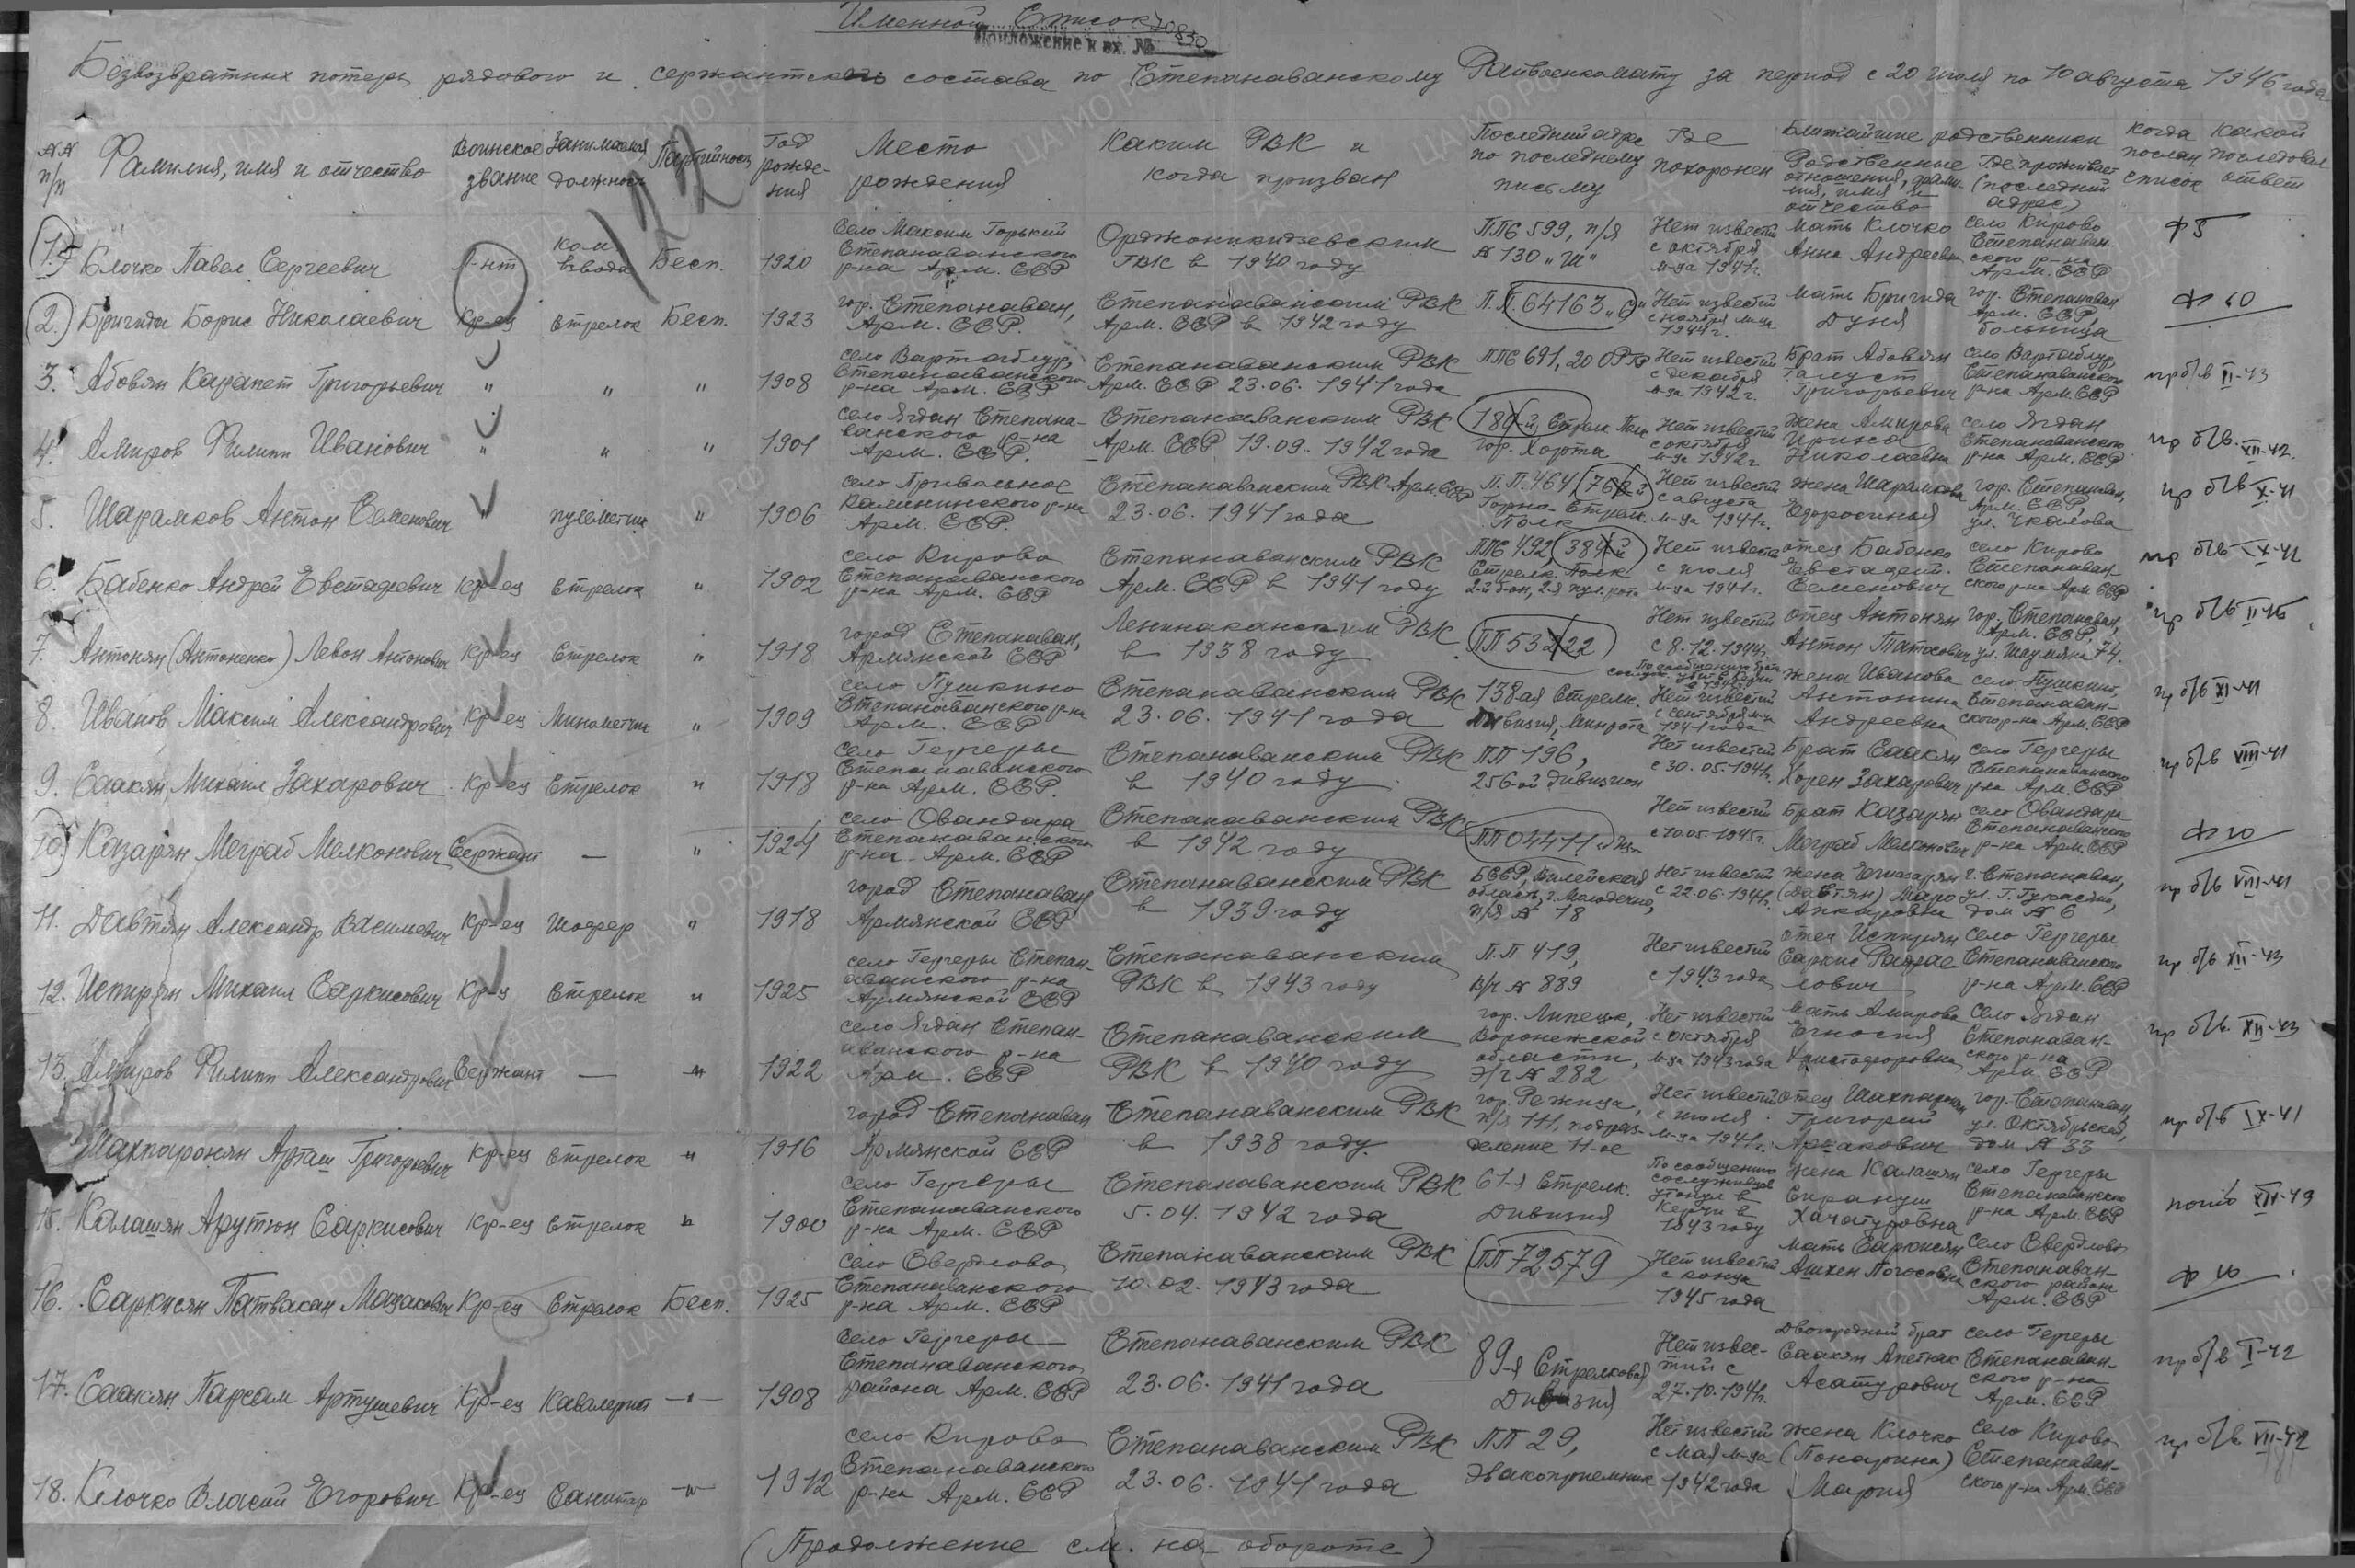 Именной Список
Приложение к вх. № 70850
Безвозвратных потерь рядового и сержантского состава по Степанаванскому Райвоенкомату за период с 20 июля по 10 августа 1946 года
№№ п/п
Фамилия, имя и отчество
Воинское звание
Занимаемая должность
Партийность
Год рождения
Место рождения
Каким РВК и когда призван
Последний адрес по последнему письму
Где похоронен
Ближайшие родственники
Родственные отношения, фамилия, имя и отчество
Где проживает (последний адрес)
Когда послан список
Какой последовал ответ
1. Клочко Павел Сергеевич Л-нт Ком взвода Бесп. 1920 село Максим Горький Степанаванского р-на Арм. ССР Орджоникидзевским ГВК в 1940 году ППС 599, п/я № 130 "Ш" Нет известий с октября м-ца 1941г. Мать Клочко Анна Андреевна село Кирово Степанаванского р-на Арм. ССР
2. Бригида Борис Николаевич Кр-ец Стрелок Бесп. 1923 гор. Степанаван, Арм. ССР. Степанаванским РВК Арм. ССР в 1942 году П.П. 64163 Нет известий с ноября м-ца 1944г. Мать Бригида Дуня гор. Степанаван Арм. ССР, больница
3. Абовян Карапет Григорьевич " " " 1908 село Вартаблур, Степанаванского р-на Арм. ССР Степанаванским РВК Арм. ССР 23.06.1941 года ППС 691, 20 ОРТБ Нет известий с декабря м-ца 1942г. Брат Абовян Август Григорьевич село Вартаблур, Степанаванского р-на Арм. ССР пр б/в II-43
4. Амиров Филипп Иванович " " " 1901 село Ягдан Степанаванского р-на Арм. ССР. Степанаванским РВК Арм. ССР 19.09.1942 года Стрелк. Полк гор. Хорта Нет известий с октября м-ца 1942г Жена Амирова Ирина Николаевна село Ягдан Степанаванского р-на Арм. ССР пр б/в. XII-42.
5. Шарамков Антон Семенович " пулеметчик " 1906 село Привольное Калининского р-на Арм. ССР. Степанаванским РВК Арм. ССР 23.06.1941 года П.П. 464 Горно-Стрелк. Полк Нет известий с августа м-ца 1941г. Жена Шарамкова гор. Степанаван, Арм. ССР, ул. Чкалова пр б/в X-41
6. Бабенко Андрей Евстафевич Кр-ец Стрелок " 1902 село Кирово Степанаванского р-на Арм. ССР Степанаванским РВК Арм. ССР в 1941 году ППС 492, 384й Стрелк. Полк 2-й б-он, 2-я пул. рота Нет известий с июля м-ца 1941г. отец Бабенко Евстафей Семенович село Кирово Степанаванского р-на Арм. ССР
7. Антонян (Антоненко) Левон Антонович Кр-ец Стрелок " 1918 город Степанаван, Армянской ССР Ленинаканским РВК в 1938 году ПП 53222 Нет известий с 8.12.1944г. отец Антонян Антон Татосович гор. Степанаван, Арм. ССР, ул. Шаумяна 74. пр б/в II-45
8. Иванов Максим Александрович Кр-ец Минометчик " 1909 село Пушкино Степанаванского р-на Арм. ССР Степанаванским РВК 23.06.1941 года 138-ая Стрелк. Дивизия, Минрота Нет известий с сентября м-ца 1941 года Жена Иванова Антонина Андреевна село Пушкино, Степанаванского р-на Арм. ССР пр б/в XI-41
9. Саакян Михаил Захарович Кр-ец Стрелок " 1918 село Гергеры Степанаванского р-на Арм. ССР. Степанаванским РВК в 1940 году ПП 196, 256-ой Дивизион Нет известий с 30.05.1941г. Брат Саакян Хорен Захарович село Гергеры Степанаванского р-на Арм. ССР пр б/в VIII-41
10. Казарян Меграб Мелконович Сержант — " 1924 село Овандара Степанаванского р-на Арм. ССР Степанаванским РВК в 1942 году ПП 04411 Нет известий с 10.05.1945г. Брат Казарян Меграб Мелконович село Овандара Степанаванского р-на Арм. ССР
11. Давтян Александр Васильевич Кр-ец Шофер " 1918 город Степанаван Армянской ССР Степанаванским РВК в 1939 году БССР, Вилейская область, г. Молодечно, п/я № 18 Нет известий с 22.06.1941г. Жена Егиазарян (Давтян) Маро г. Степанаван, ул. Г. Гукасяна, дом № 6 пр б/в VIII-41
12. Испирян Михаил Саркисович Кр-ц Стрелок " 1925 село Гергеры Степанаванского р-на Армянской ССР Степанаванским РВК в 1943 году П.П 419, в/ч № 889 Нет известий с 1943 года отец Испирян Саркис село Гергеры Степанаванского р-на Арм. ССР пр б/в XII-43
13. Амиров Филипп Александрович Сержант — " 1922 село Ягдан Степанаванского р-на Арм. ССР Степанаванским РВК в 1940 году гор. Липецк, Воронежской области, Э/г № 282 Нет известий с октября м-ца 1943 года Мать Амирова Христофоровна село Ягдан Степанаванского р-на Арм. ССР пр б/в XII-43
Шахпаронян Арташ Григорьевич Кр-ец Стрелок " 1916 город Степанаван Армянской ССР Степанаванским РВК в 1938 году. гор. Режица, п/я 111, подразделение 11-ое Нет известий с июля м-ца 1941г. отец Шахпаронян Григорий Аршакович гор. Степанаван, ул. Октябрьская, дом № 33 пр б/в IX-41
15. Калашян Арутюн Саркисович Кр-ец Стрелок " 1900 село Гергеры Степанаванского р-на Арм. ССР Степанаванским РВК 5.04.1942 года 61-я Стрелк. Дивизия По сообщению сослуживцев утонул в Керчи в 1943 году Жена Калашян Сирануш Хачатуровна село Гергеры Степанаванского р-на Арм. ССР погиб XII-43
16. Саркисян Патвакан Мадакович Кр-ец Стрелок Бесп. 1925 село Свердлово Степанаванского р-на Арм. ССР Степанаванским РВК 10.02.1943 года ПП 72579 Нет известий с конца 1945 года Мать Саркисян Ашхен Погосовна село Свердлово Степанаванского района Арм. ССР
17. Саакян Парсам Артушевич Кр-ец Кавалерист —"— 1908 село Гергеры Степанаванского района Арм. ССР Степанаванским РВК 23.06.1941 года 89-я Стрелковая Дивизия Нет известий с 27.10.1941г. Двоюродный брат Саакян Апетнак Асатурович село Гергеры Степанаванского р-на Арм. ССР пр б/в I-42
18. Клочко Власий Егорович Кр-ец Санитар —"— 1912 село Кирово Степанаванского р-на Арм. ССР Степанаванским РВК 23.06.1941 года ПП 29, Эвакоприемник Нет известий с мая м-ца 1942 года Жена Клочко (Понарина) Мария село Кирово Степанаванского р-на Арм. ССР пр б/в VII-42
(Продолжение см. на обороте)